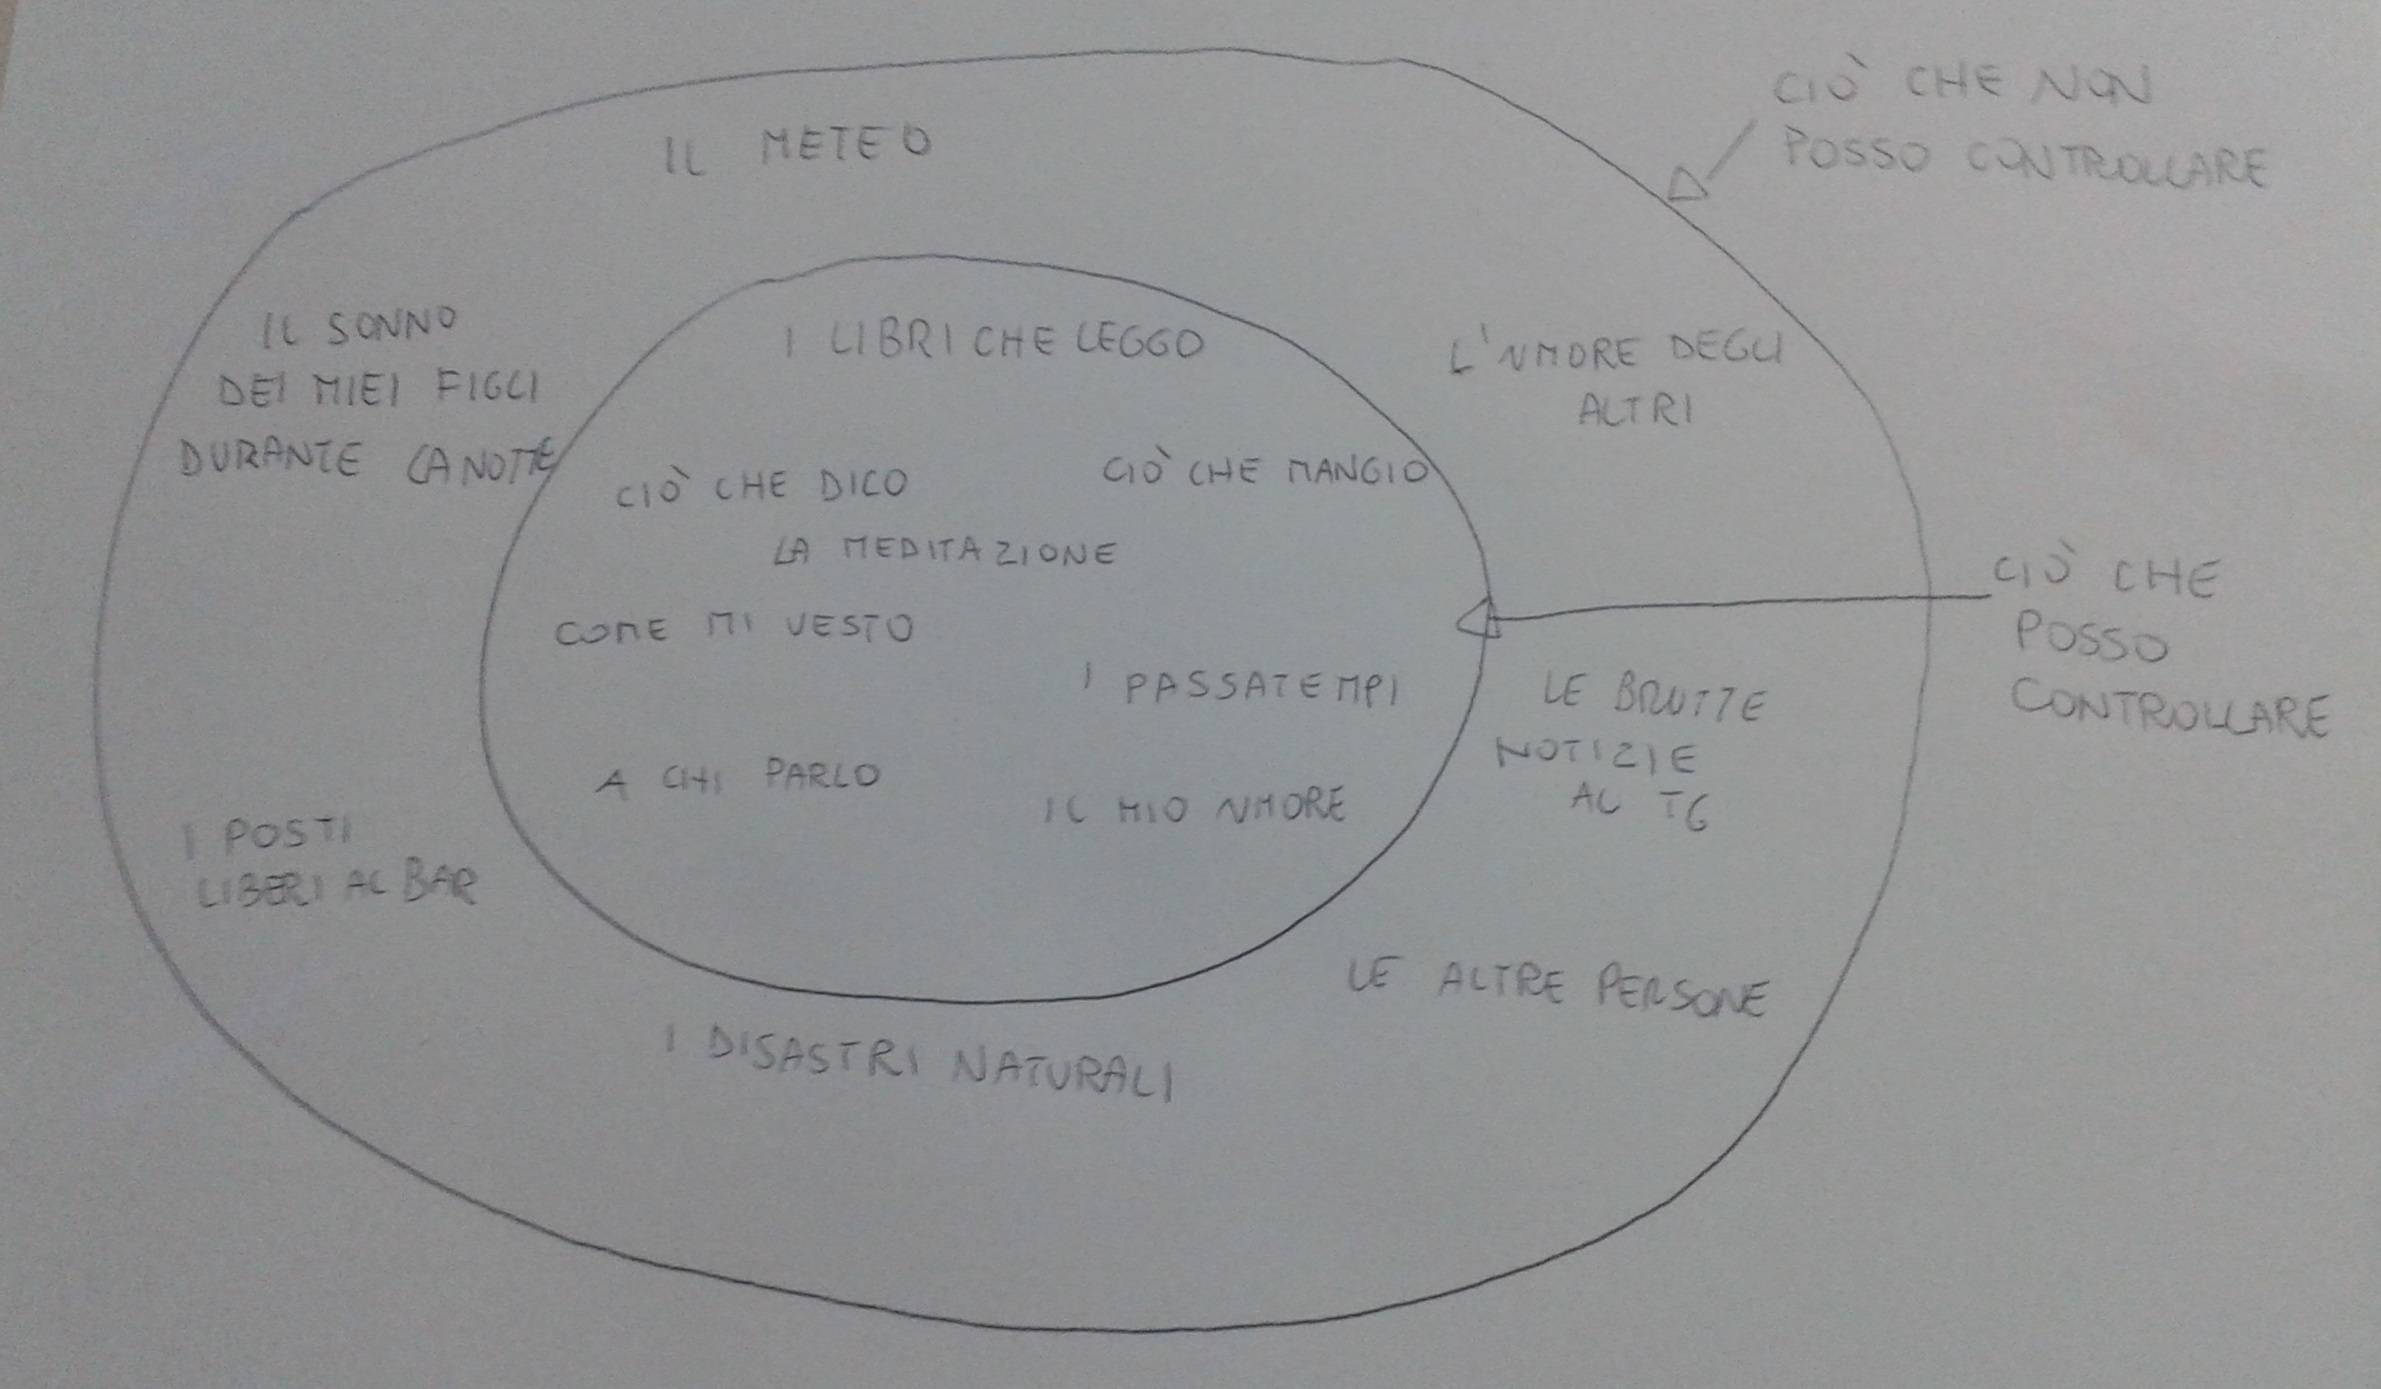 CIÒ CHE NON
POSSO CONTROLLARE
IL METEO
IL SONNO
DEI MIEI FIGLI
DURANTE LA NOTTE
I LIBRI CHE LEGGO
L'UMORE DEGLI
ALTRI
CIÒ CHE DICO
CIÒ CHE MANGIO
LA MEDITAZIONE
COME MI VESTO
I PASSATEMPI
A CHI PARLO
IL MIO UMORE
CIÒ CHE
POSSO
CONTROLLARE
LE BRUTTE
NOTIZIE
AL TG
I POSTI
LIBERI AL BAR
LE ALTRE PERSONE
I DISASTRI NATURALI